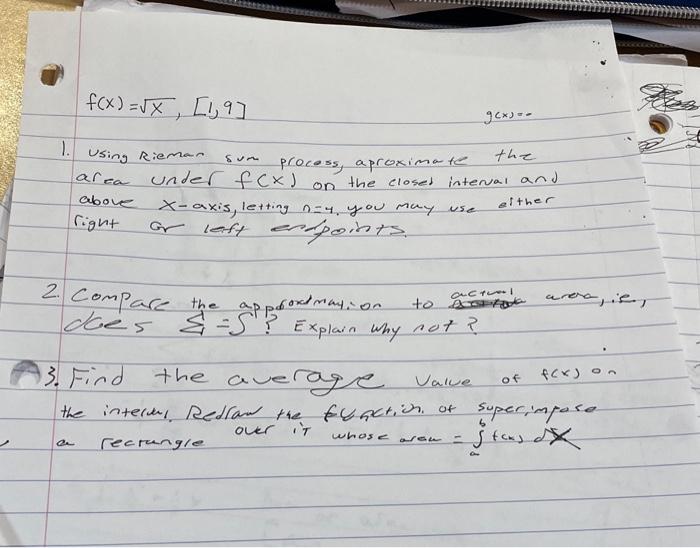 f(x) = √x, [1, 9]
g(x) =
1. Using Rieman sum process, aproximate the
area under f(x) on the closed interval and
above x-axis, letting n=4. you may use either
right or left endpoints.
2. Compare the approximation to actual area, i.e,
does Σ = ∫ ? Explain why not ?
3. Find the average value of f(x) on
the interval. Redraw the function or superimpose
a rectangle over it whose area = ∫ₐᵇ f(x) dx